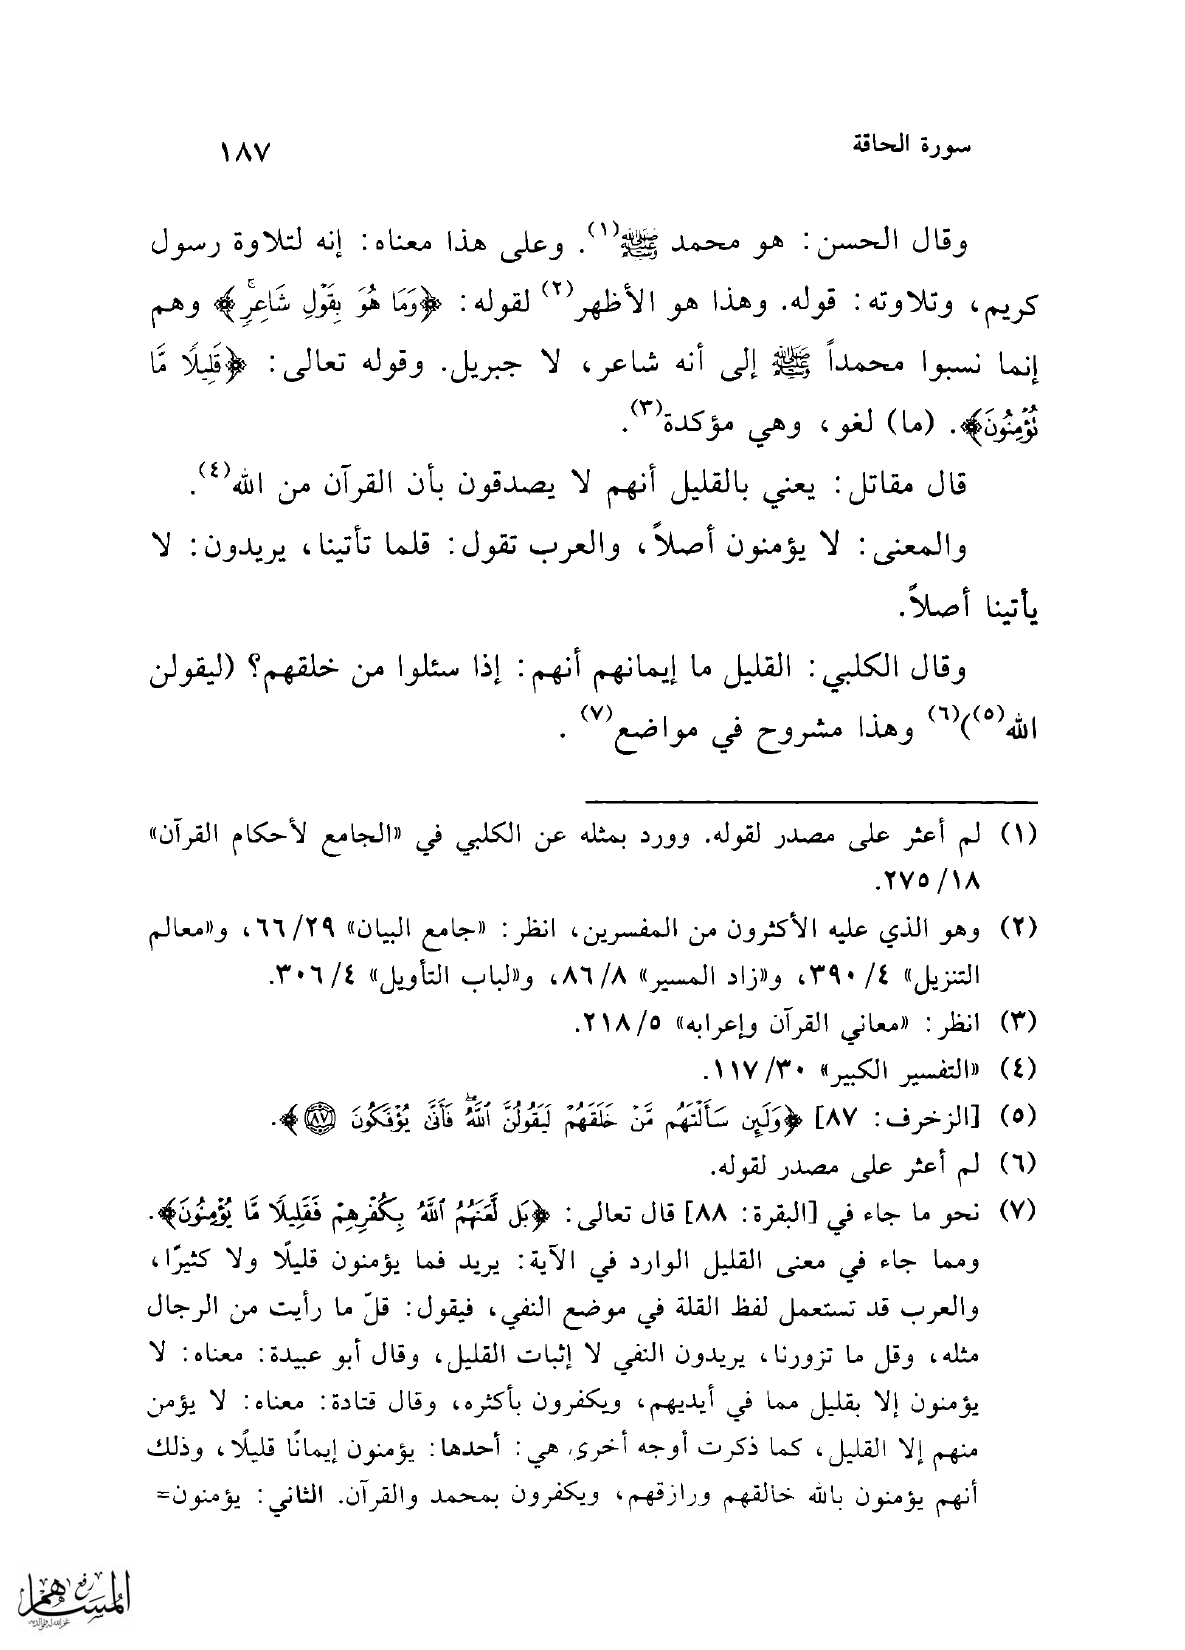 سورة الحاقة ١٨٧
وقال الحسن: هو محمد ﷺ(١). وعلى هذا معناه: إنه لتلاوة رسول
كريم، وتلاوته: قوله. وهذا هو الأظهر(٢) لقوله: ﴿وَمَا هُوَ بِقَوْلِ شَاعِرٍ﴾ وهم
إنما نسبوا محمداً ﷺ إلى أنه شاعر، لا جبريل. وقوله تعالى: ﴿قَلِيلًا مَّا
تُؤْمِنُونَ﴾. (ما) لغو، وهي مؤكدة(٣).
قال مقاتل: يعني بالقليل أنهم لا يصدقون بأن القرآن من الله(٤).
والمعنى: لا يؤمنون أصلاً، والعرب تقول: قلما تأتينا، يريدون: لا
يأتينا أصلاً.
وقال الكلبي: القليل ما إيمانهم أنهم: إذا سئلوا من خلقهم؟ (ليقولن
الله(٥))(٦) وهذا مشروح في مواضع(٧).
(١) لم أعثر على مصدر لقوله. وورد بمثله عن الكلبي في «الجامع لأحكام القرآن»
١٨/ ٢٧٥.
(٢) وهو الذي عليه الأكثرون من المفسرين، انظر: «جامع البيان» ٢٩/ ٦٦، و«معالم
التنزيل» ٤/ ٣٩٠، و«زاد المسير» ٨/ ٨٦، و«لباب التأويل» ٤/ ٣٠٦.
(٣) انظر: «معاني القرآن وإعرابه» ٥/ ٢١٨.
(٤) «التفسير الكبير» ٣٠/ ١١٧.
(٥) [الزخرف: ٨٧] ﴿وَلَئِن سَأَلْتَهُم مَّنْ خَلَقَهُمْ لَيَقُولُنَّ ٱللَّهُ فَأَنَّىٰ يُؤْفَكُونَ ٨٧﴾.
(٦) لم أعثر على مصدر لقوله.
(٧) نحو ما جاء في [البقرة: ٨٨] قال تعالى: ﴿بَل لَّعَنَهُمُ ٱللَّهُ بِكُفْرِهِمْ فَقَلِيلًا مَّا يُؤْمِنُونَ﴾.
ومما جاء في معنى القليل الوارد في الآية: يريد فما يؤمنون قليلًا ولا كثيرًا،
والعرب قد تستعمل لفظ القلة في موضع النفي، فيقول: قلّ ما رأيت من الرجال
مثله، وقل ما تزورنا، يريدون النفي لا إثبات القليل، وقال أبو عبيدة: معناه: لا
يؤمنون إلا بقليل مما في أيديهم، ويكفرون بأكثره، وقال قتادة: معناه: لا يؤمن
منهم إلا القليل، كما ذكرت أوجه أخرى هي: أحدها: يؤمنون إيمانًا قليلًا، وذلك
أنهم يؤمنون بالله خالقهم ورازقهم، ويكفرون بمحمد والقرآن. الثاني: يؤمنون=